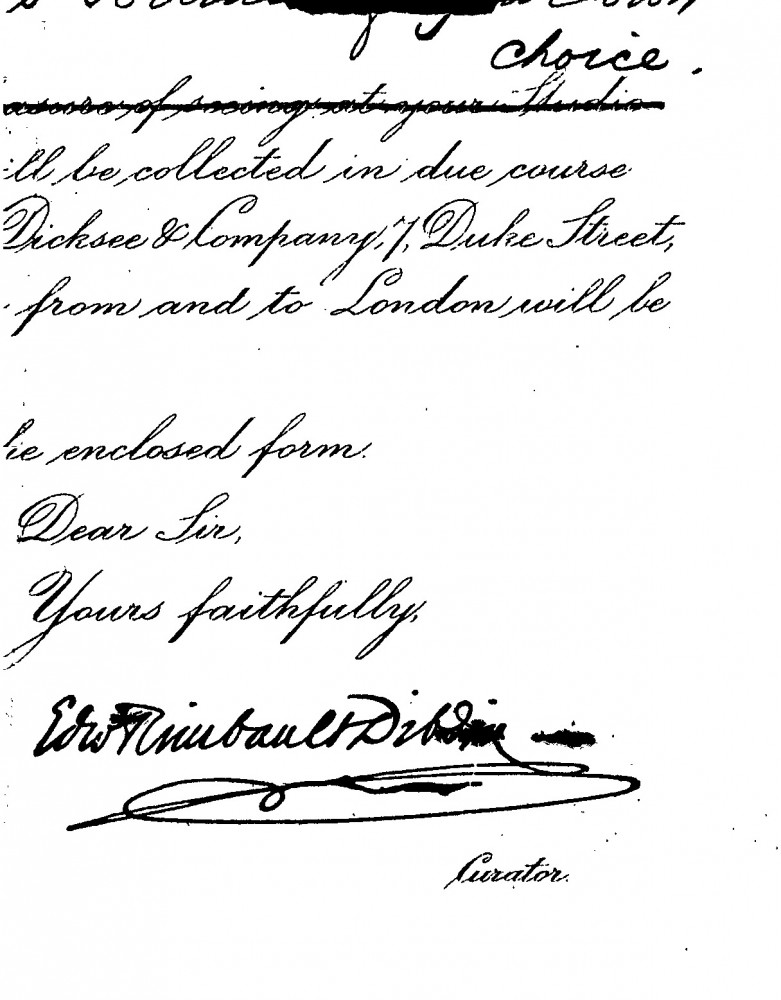 your own
choice.
asure of seeing at your Studio
ill be collected in due course
Dicksee & Company, 7, Duke Street,
from and to London will be
he enclosed form.
Dear Sir,
Yours faithfully,
Edw Rimbault Dibdin
Curator.